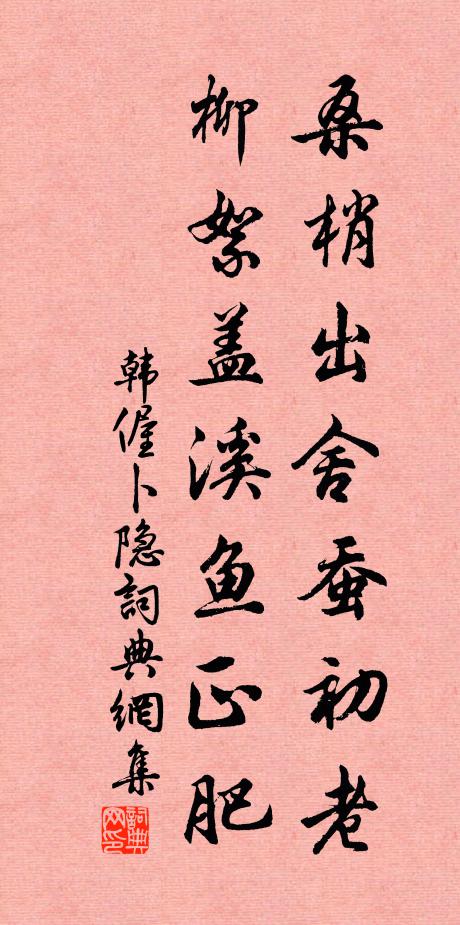 桑梢出舍蚕初老
柳絮盖溪鱼正肥
韩偓卜隐詞典網集
詞典网印